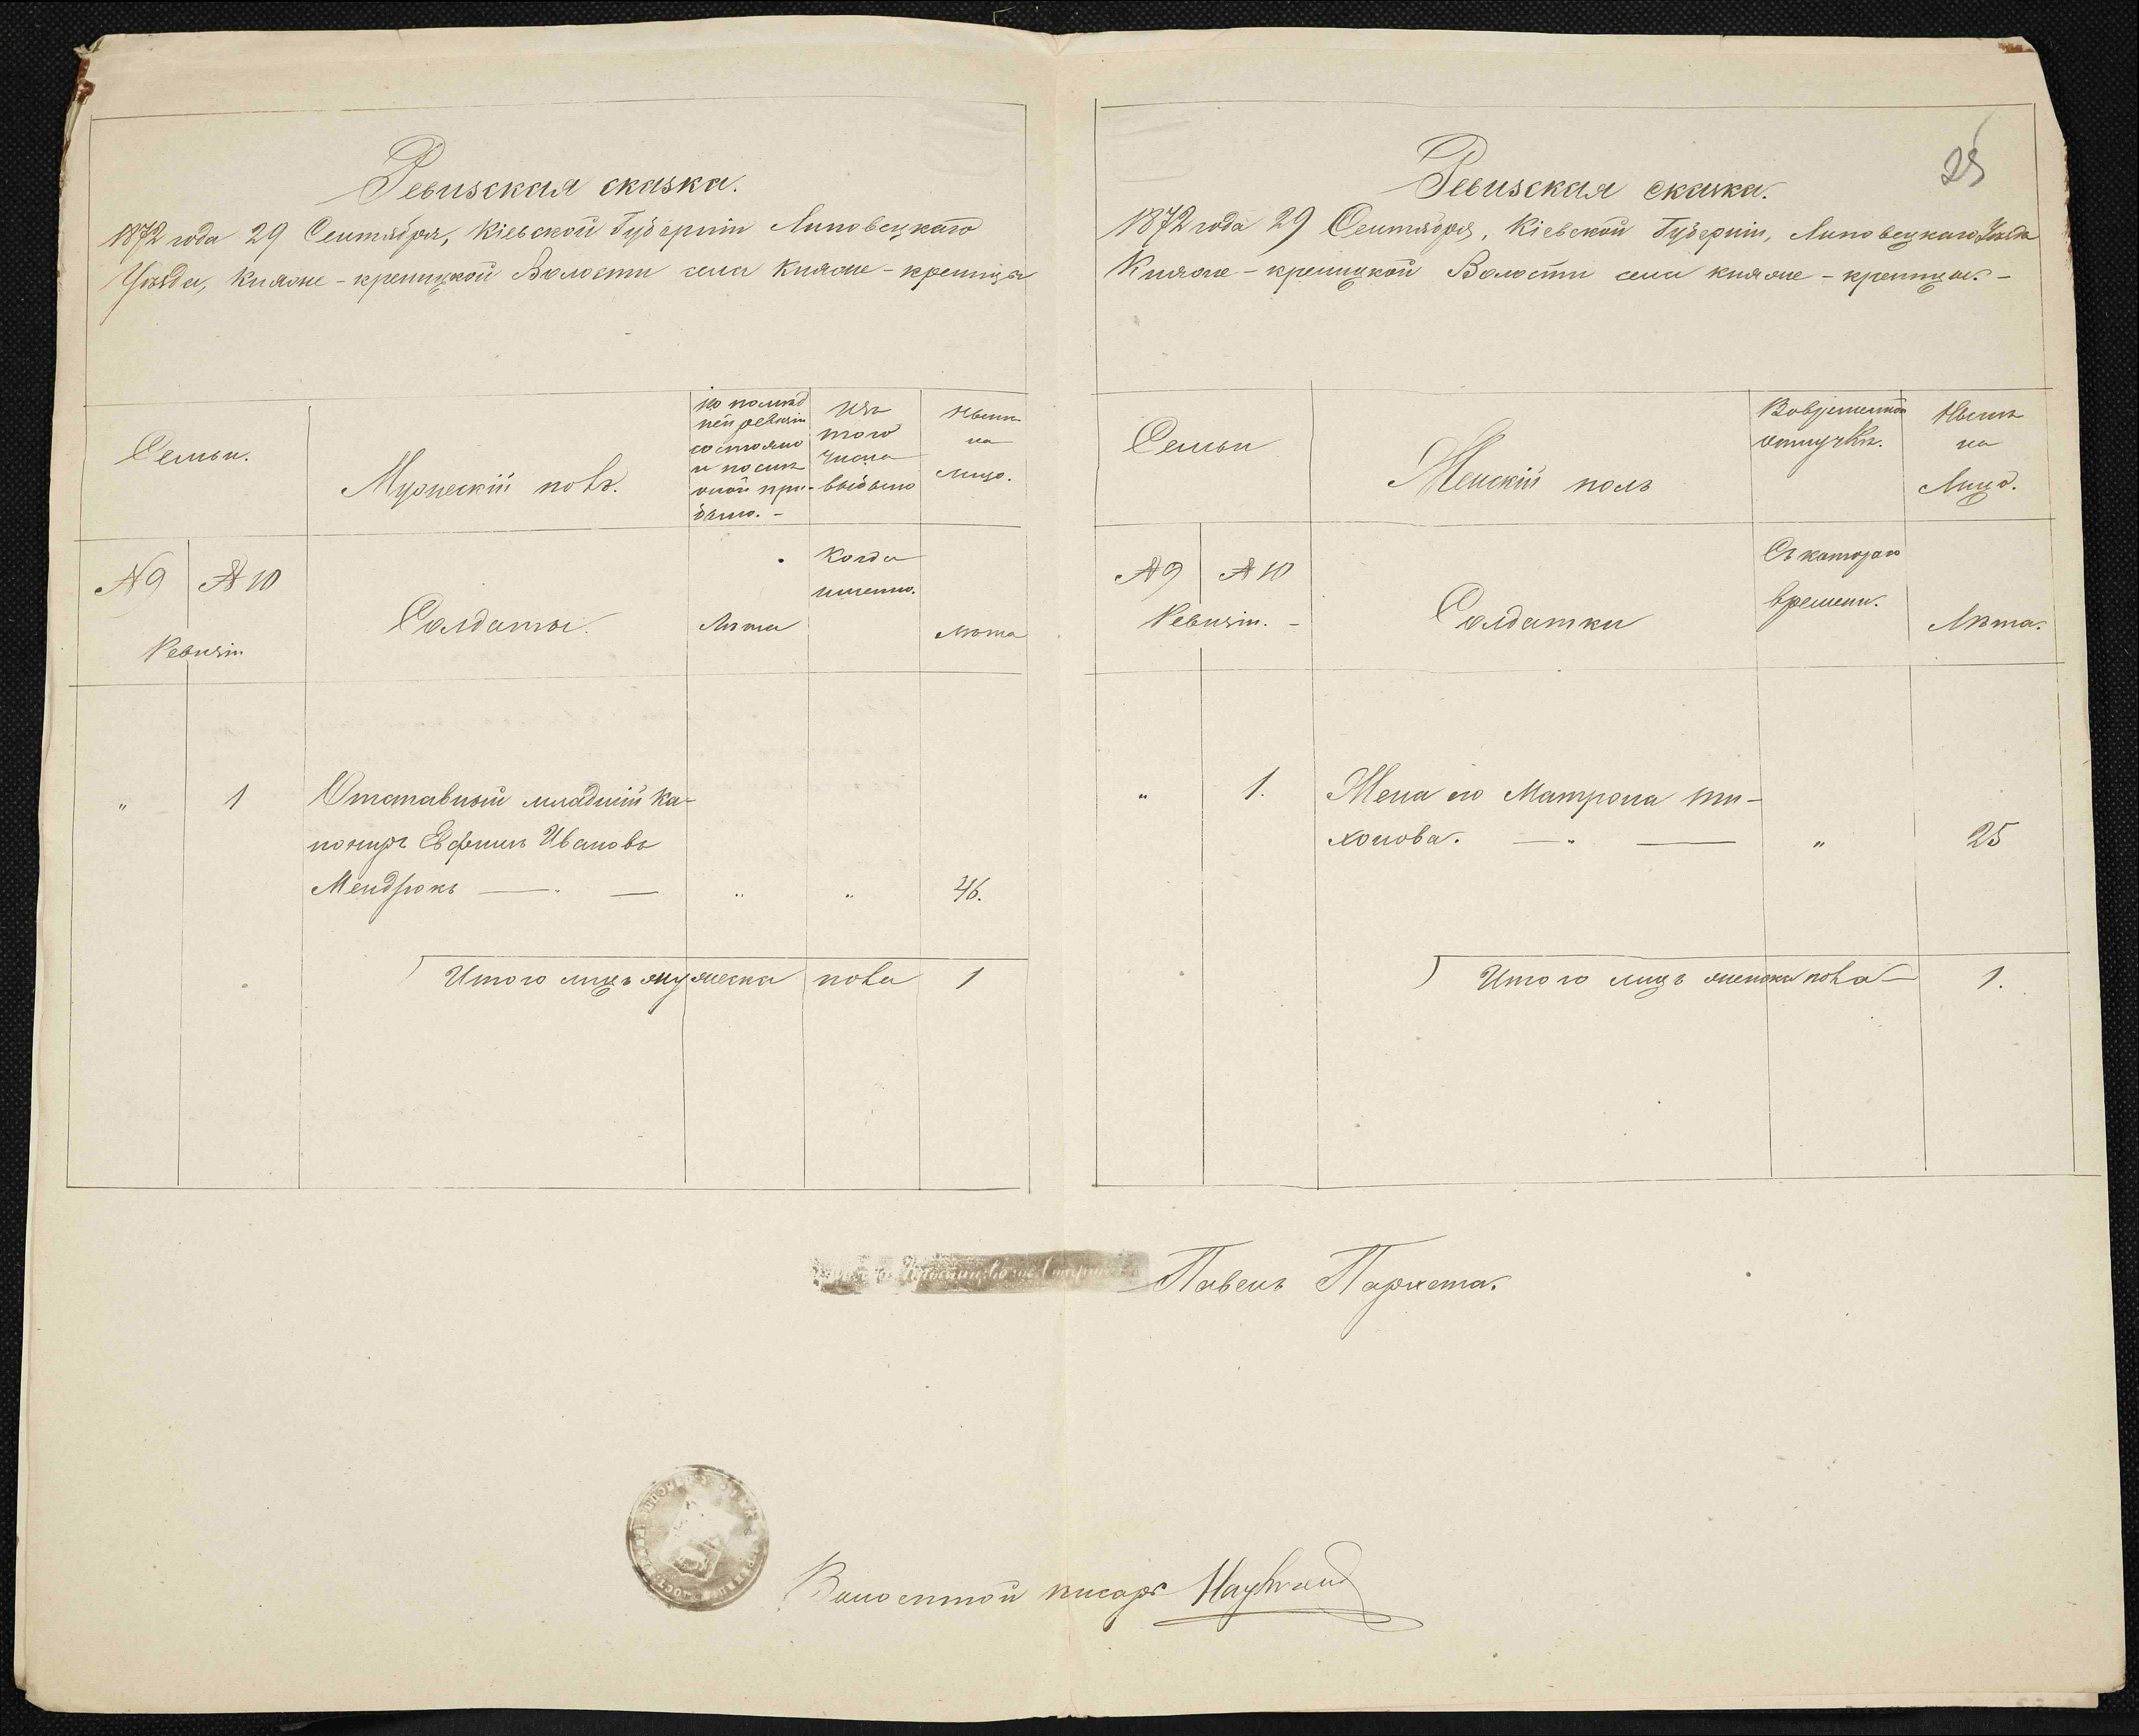 Ревизская сказка.
1872 года 29 Сентября, Кіевской Губерніи Липовецкаго
Уѣзда, Княже-криницкой Волости села Княже-криницы
Семьи.
Мужескій полъ.
по послѣд
ней ревизіи
состояло
и послѣ
оной при-
было. -
изъ
того
числа
выбыло
Нынѣ
на
лицо.
№ 9
№ 10
Ревизіи
Солдаты.
Лѣта
Когда
именно.
Лѣта
"
1
Отставный младшій ка-
нониръ Евфимъ Ивановъ
Мендрюкъ — . —
"
"
46.
Итого лицъ мужеска пола
1
25
Ревизская сказка.
1872 года 29 Сентября, Кіевской Губерніи, Липовецкаго Уѣзда
Княже-криницкой Волости села княже-криницы. -
Семьи
Женскій полъ
Вовременной
отлучкѣ.
Нынѣ
на
Лицо.
№ 9
№ 10
Ревизіи. -
Солдатки
Съ котораго
времени.
Лѣта.
"
1.
Жена его Матрона Ти-
хонова. — " —
"
25
Итого лицъ женска пола —
1.
Павелъ Пархета.
Волостной писарь